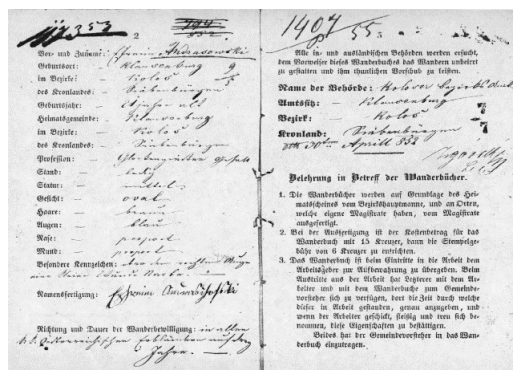 353
2
Vor- und Zuname: Efraim Andrasowski
Geburtsort: Klausenburg
im Bezirke: Kolos
des Kronlandes: Siebenbürgen
Geburtsjahr: alt
Heimatsgemeinde: Klausenburg
im Bezirke: Kolos
des Kronlandes: Siebenbürgen
Profession:
Stand: ledig
Statur: mittel
Gesicht: oval
Haare: braun
Augen: blau
Nase: proport
Mund: proport
Besondere Kennzeichen:
Namensfertigung: Efraim
Richtung und Dauer der Wanderbewilligung: in allen
k. k. österreichischen Erbländern auf
Jahre.
1404
55
3
Alle in- und ausländischen Behörden werden ersucht,
dem Vorweiser dieses Wanderbuches das Wandern unbeirrt
zu gestatten und ihm thunlichen Vorschub zu leisten.
Name der Behörde: Koloser Bezirks
Amtssitz: Klausenburg
Bezirk: Kolos
Kronland: Siebenbürgen
den 30ten April 852
Belehrung in Betreff der Wanderbücher.
1. Die Wanderbücher werden auf Grundlage des Hei-
matsscheines vom Bezirkshauptmanne, und an Orten,
welche eigene Magistrate haben, vom Magistrat
ausgefertigt.
2. Bei der Ausfertigung ist der Kostenbetrag für das
Wanderbuch mit 15 Kreuzer, dann die Stempelge-
bühr von 6 Kreuzer zu entrichten.
3. Das Wanderbuch ist beim Eintritte in die Arbeit dem
Arbeitgeber zur Aufbewahrung zu übergeben. Beim
Austritte aus der Arbeit hat Letzterer mit dem Ar-
beiter und mit dem Wanderbuche zum Gemeinde-
vorsteher sich zu verfügen, dort die Zeit durch welche
dieser in Arbeit gestanden, genau anzugeben, und
wenn der Arbeiter geschickt, fleißig und treu sich be-
nommen, diese Eigenschaften zu bestätigen.
Beides hat der Gemeindevorsteher in das Wan-
derbuch einzutragen.